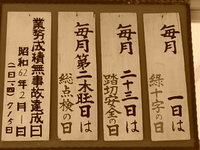 毎月
一日は
緑十字の日
毎月
二十三日は
踏切安全の日
毎月第二木旺日は
総点検の日
業務成績無事故達成日
昭和62年2月 日